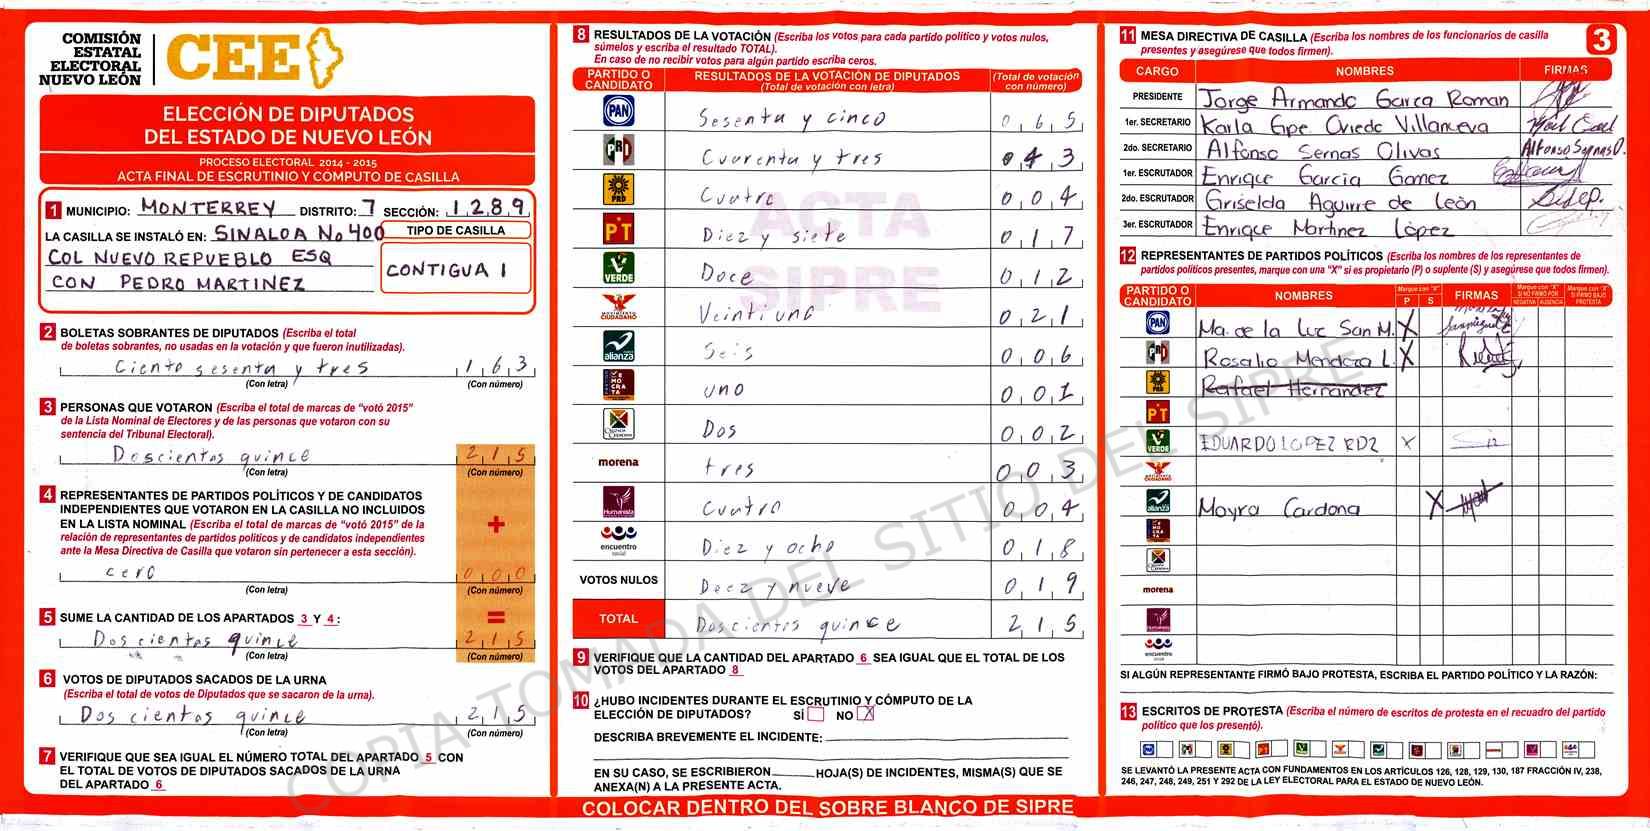 COMISIÓN
ESTATAL
ELECTORAL
NUEVO LEÓN
CEE
ELECCIÓN DE DIPUTADOS
DEL ESTADO DE NUEVO LEÓN
PROCESO ELECTORAL 2014 - 2015
ACTA FINAL DE ESCRUTINIO Y CÓMPUTO DE CASILLA
1 MUNICIPIO: MONTERREY DISTRITO: 7 SECCIÓN: 1289
LA CASILLA SE INSTALÓ EN: SINALOA No 400
COL NUEVO REPUEBLO ESQ
CON PEDRO MARTINEZ
TIPO DE CASILLA
CONTIGUA 1
2 BOLETAS SOBRANTES DE DIPUTADOS (Escriba el total
de boletas sobrantes, no usadas en la votación y que fueron inutilizadas).
Ciento sesenta y tres 163
(Con letra) (Con número)
3 PERSONAS QUE VOTARON (Escriba el total de marcas de "votó 2015"
de la Lista Nominal de Electores y de las personas que votaron con su
sentencia del Tribunal Electoral).
Doscientos quince 215
(Con letra) (Con número)
4 REPRESENTANTES DE PARTIDOS POLÍTICOS Y DE CANDIDATOS
INDEPENDIENTES QUE VOTARON EN LA CASILLA NO INCLUIDOS
EN LA LISTA NOMINAL (Escriba el total de marcas de "votó 2015" de la
relación de representantes de partidos políticos y de candidatos independientes
ante la Mesa Directiva de Casilla que votaron sin pertenecer a esta sección).
+
cero 000
(Con letra) (Con número)
5 SUME LA CANTIDAD DE LOS APARTADOS 3 Y 4: =
Dos cientos quince 215
(Con letra) (Con número)
6 VOTOS DE DIPUTADOS SACADOS DE LA URNA
(Escriba el total de votos de Diputados que se sacaron de la urna).
Dos cientos quince 215
(Con letra) (Con número)
7 VERIFIQUE QUE SEA IGUAL EL NÚMERO TOTAL DEL APARTADO 5 CON
EL TOTAL DE VOTOS DE DIPUTADOS SACADOS DE LA URNA
DEL APARTADO 6
8 RESULTADOS DE LA VOTACIÓN (Escriba los votos para cada partido político y votos nulos,
súmelos y escriba el resultado TOTAL).
En caso de no recibir votos para algún partido escriba ceros.
PARTIDO O CANDIDATO RESULTADOS DE LA VOTACIÓN DE DIPUTADOS (Total de votación con letra) (Total de votación con número)
PAN Sesenta y cinco 065
PRI Cuarenta y tres 043
PRD Cuatro 004
PT Diez y siete 017
VERDE Doce 012
MOVIMIENTO CIUDADANO Veintiuno 021
alianza Seis 006
DEMOCRATA uno 001
Dos 002
morena tres 003
Humanista Cuatro 004
encuentro social Diez y ocho 018
VOTOS NULOS Deez y nueve 019
TOTAL Doscientos quince 215
ACTA
SIPRE
9 VERIFIQUE QUE LA CANTIDAD DEL APARTADO 6 SEA IGUAL QUE EL TOTAL DE LOS
VOTOS DEL APARTADO 8
10 ¿HUBO INCIDENTES DURANTE EL ESCRUTINIO Y CÓMPUTO DE LA
ELECCIÓN DE DIPUTADOS? SÍ NO X
DESCRIBA BREVEMENTE EL INCIDENTE:
EN SU CASO, SE ESCRIBIERON HOJA(S) DE INCIDENTES, MISMA(S) QUE SE
ANEXA(N) A LA PRESENTE ACTA.
COLOCAR DENTRO DEL SOBRE BLANCO DE SIPRE
11 MESA DIRECTIVA DE CASILLA (Escriba los nombres de los funcionarios de casilla
presentes y asegúrese que todos firmen).
3
CARGO NOMBRES FIRMAS
PRESIDENTE Jorge Armando Garca Roman
1er. SECRETARIO Karla Gpe Oviedo Villanueva
2do. SECRETARIO Alfonso Sernas Olivas Alfonso Sernas O.
1er. ESCRUTADOR Enrique García Gomez
2do. ESCRUTADOR Griselda Aguirre de León
3er. ESCRUTADOR Enrique Martinez López
12 REPRESENTANTES DE PARTIDOS POLÍTICOS (Escriba los nombres de los representantes de
partidos políticos presentes, marque con una "X" si es propietario (P) o suplente (S) y asegúrese que todos firmen).
PARTIDO O CANDIDATO NOMBRES Marque con "X" P S FIRMAS Marque con "X" SI NO FIRMÓ POR NEGATIVA AUSENCIA Marque con "X" SI FIRMÓ BAJO PROTESTA
PAN Ma. de la Luz San M. X
PRI Rosalio Mendoza L. X
PRD Rafael Hernandez
PT
VERDE EDUARDO LOPEZ RDZ X
alianza Mayra Cardona X
morena
encuentro social
SI ALGÚN REPRESENTANTE FIRMÓ BAJO PROTESTA, ESCRIBA EL PARTIDO POLÍTICO Y LA RAZÓN:
13 ESCRITOS DE PROTESTA (Escriba el número de escritos de protesta en el recuadro del partido
político que los presentó).
SE LEVANTÓ LA PRESENTE ACTA CON FUNDAMENTOS EN LOS ARTÍCULOS 126, 128, 129, 130, 187 FRACCIÓN IV, 238,
246, 247, 248, 249, 251 Y 292 DE LA LEY ELECTORAL PARA EL ESTADO DE NUEVO LEÓN.
COPIA TOMADA DEL SITIO DEL SIPRE